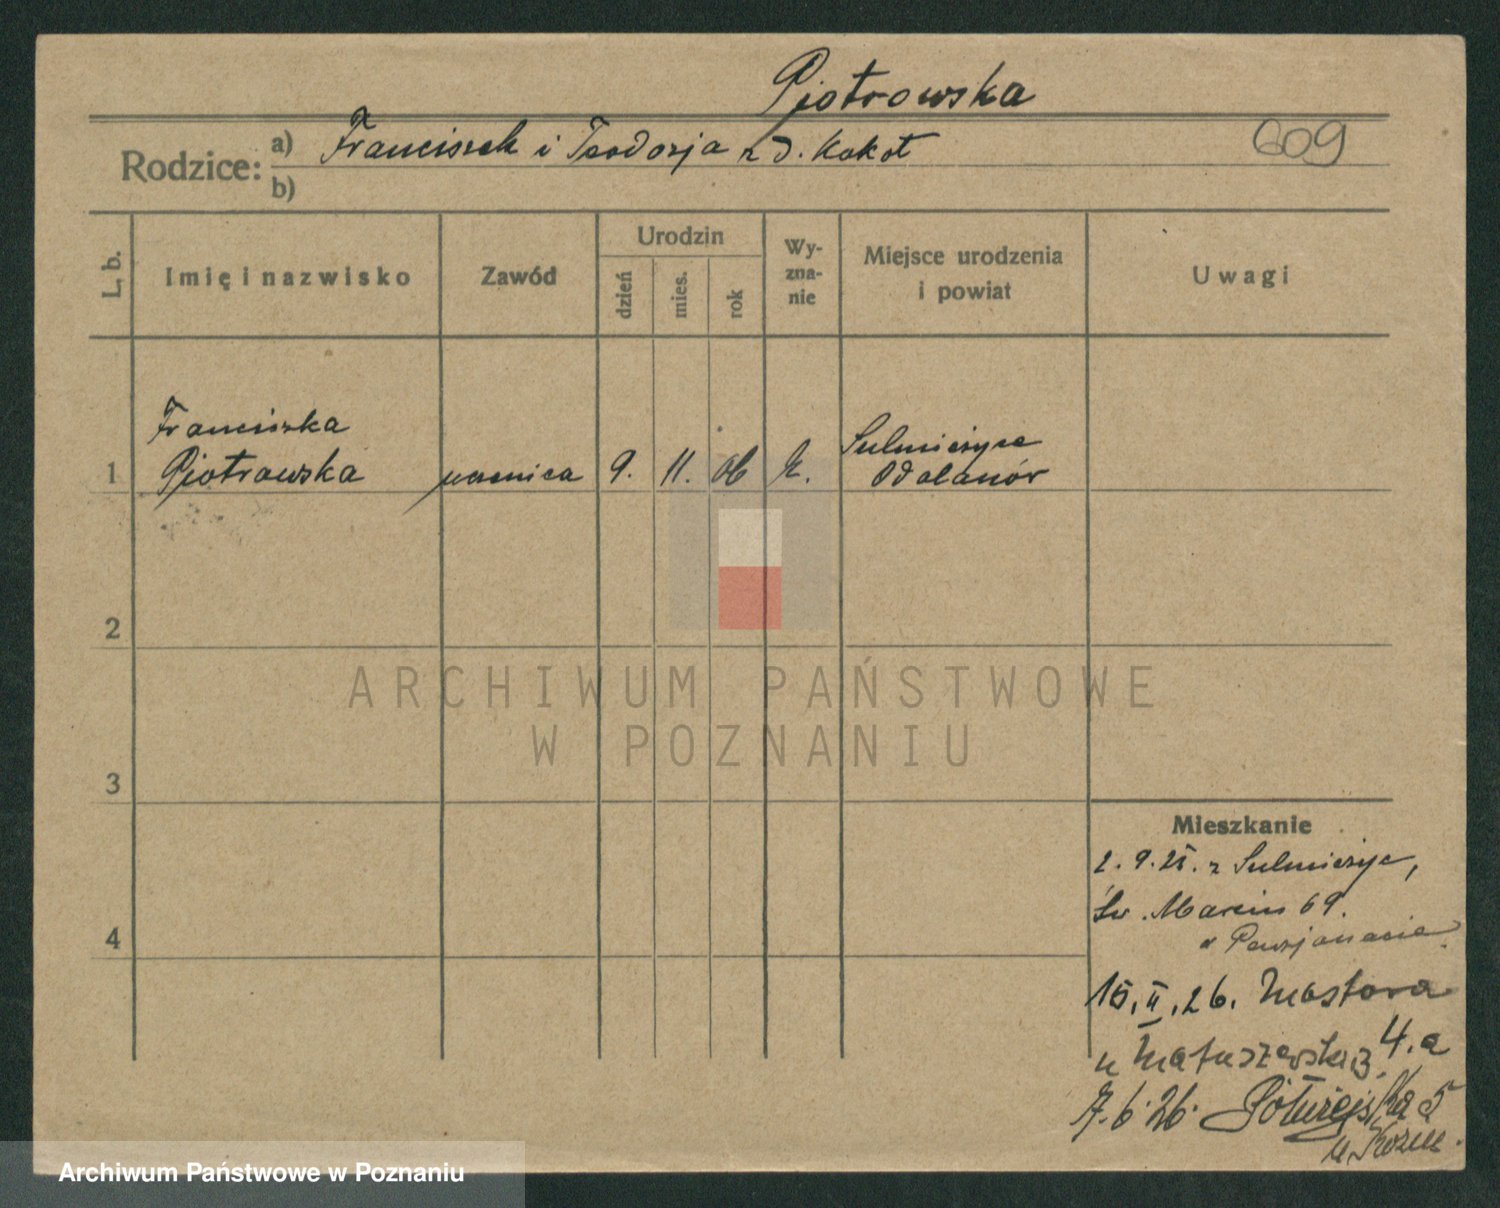 Piotrowska
Rodzice: a) Franciszek i Teodozja z d. Kokot
609
b)
L. b.
Imię i nazwisko
Zawód
Urodzin
dzień
mies.
rok
Wy-
zna-
nie
Miejsce urodzenia
i powiat
Uwagi
Franciszka
1 Piotrowska uczenica 9. 11. 06 k. Sulmierzyce
Odolanów
2
ARCHIWUM PAŃSTWOWE
W POZNANIU
3
Mieszkanie
2. 9. 25. z Sulmierzyc,
Św. Marcin 69.
4
15. II. 26. Mostowa
4. a
7. 6. 26. Półwiejska 5
Archiwum Państwowe w Poznaniu